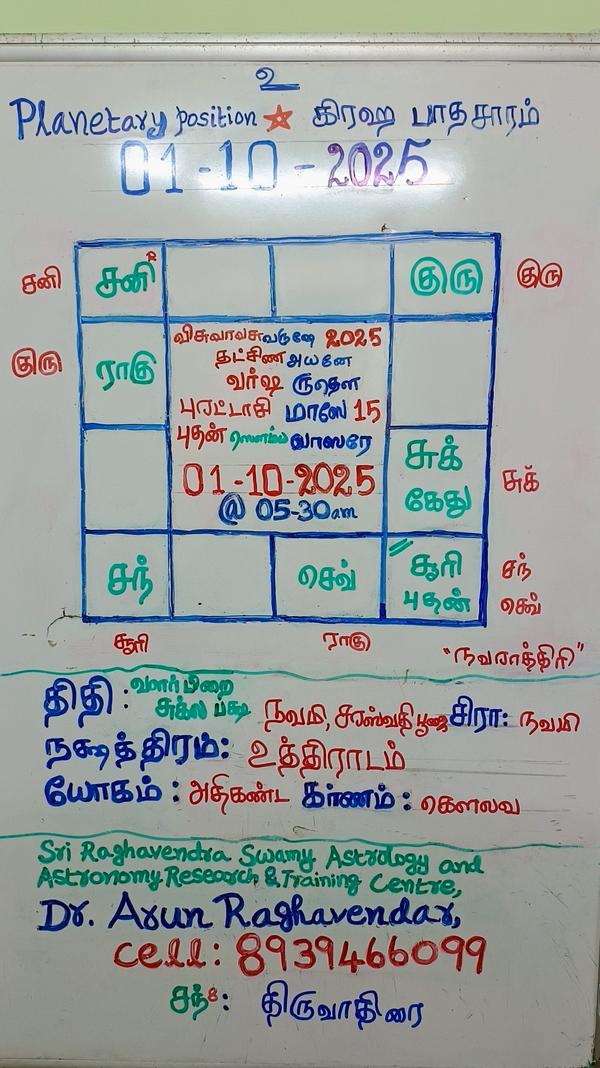 உ
Planetary position கிரஹ பாதசாரம்
01-10-2025
சனி சனி R குரு குரு
குரு ராகு
விசுவாவசுவருஷே 2025
தட்சிண அயனே
வர்ஷ ருதௌ
புரட்டாசி மாஸே 15
புதன் ஸௌம்ய வாஸரே
01-10-2025
@ 05-30am
சுக் கேது சுக்
சந் செவ் சூரி புதன் சந் செவ்
சூரி ராகு
"நவராத்திரி"
திதி : வளர்பிறை சுக்ல பக்ஷ நவமி, சரஸ்வதி பூஜை சிரா: நவமி
நக்ஷத்திரம்: உத்திராடம்
யோகம் : அதிகண்ட கர்ணம் : கௌலவ
Sri Raghavendra Swamy Astrology and
Astronomy Research & Training Centre,
Dr. Arun Raghavendar,
cell: 8939466099
சந் 8: திருவாதிரை